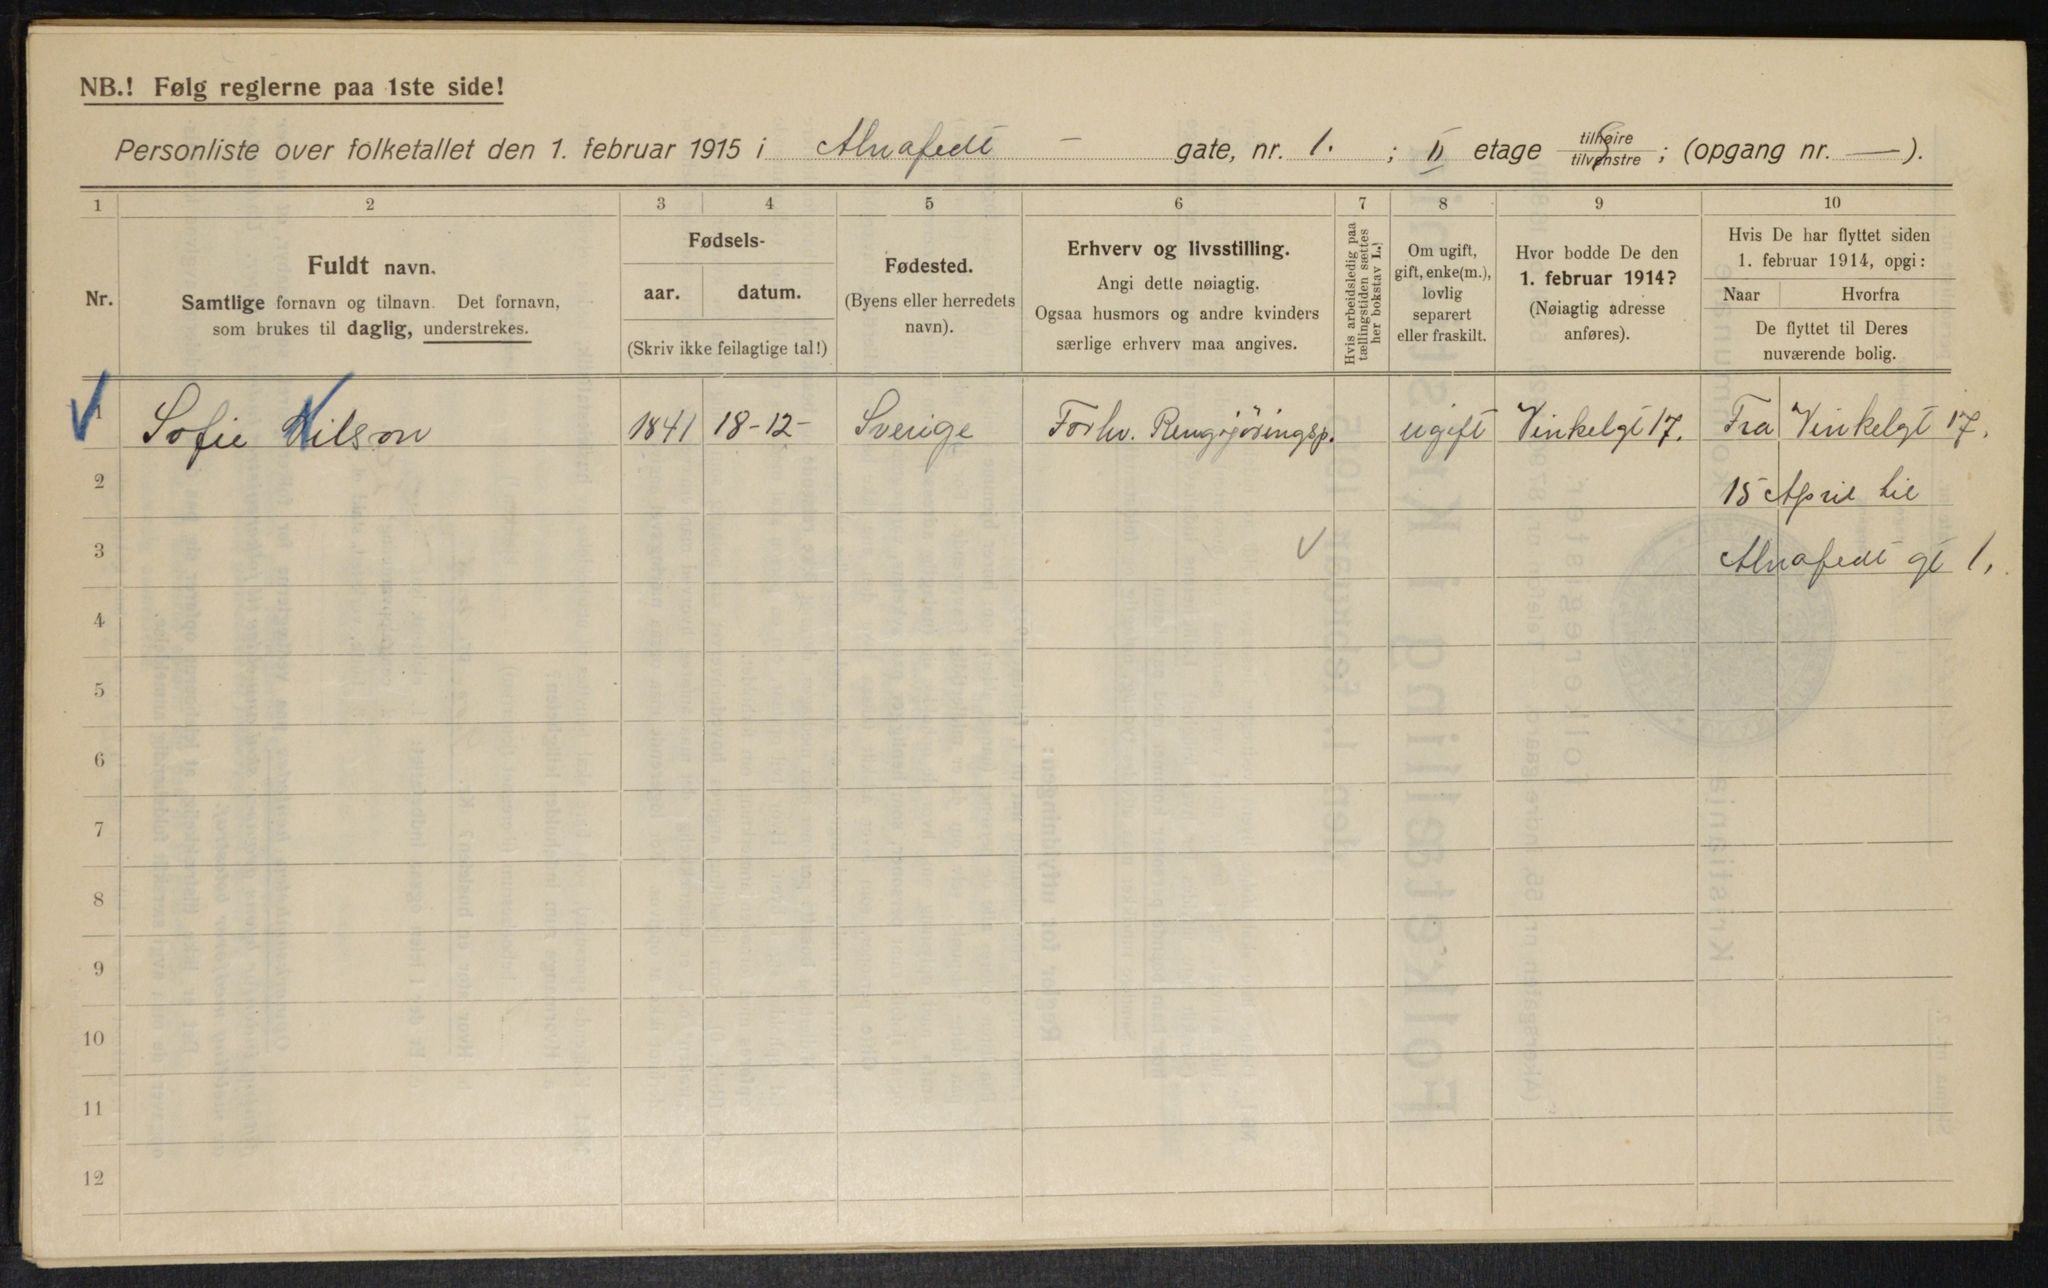 NB.! Følg reglerne paa 1ste side!
Personliste over folketallet den 1. februar 1915 i Alnafedt - gate, nr. 1. ; II etage tilhøire tilvenstre ; (opgang nr. — ).
1 2 3 4 5 6 7 8 9 10
Nr.
Fuldt navn.
Samtlige fornavn og tilnavn. Det fornavn,
som brukes til daglig, understrekes.
Fødsels-
aar. datum.
(Skriv ikke feilagtige tal!)
Fødested.
(Byens eller herredets
navn).
Erhverv og livsstilling.
Angi dette nøiagtig.
Ogsaa husmors og andre kvinders
særlige erhverv maa angives.
Hvis arbeidsledig paa
tællingstiden sættes
her bokstav L.!
Om ugift,
gift, enke(m.),
lovlig
separert
eller fraskilt.
Hvor bodde De den
1. februar 1914?
(Nøiagtig adresse
anføres).
Hvis De har flyttet siden
1. februar 1914, opgi:
Naar Hvorfra
De flyttet til Deres
nuværende bolig.
1 Sofie Nilson 1841 18-12- Sverige Forhv. Rengjøringsp. ugift Vinkelgt 17. Fra Vinkelgt 17.
2 15 April til
3 Alnafedt gt 1.
4
5
6
7
8
9
10
11
12